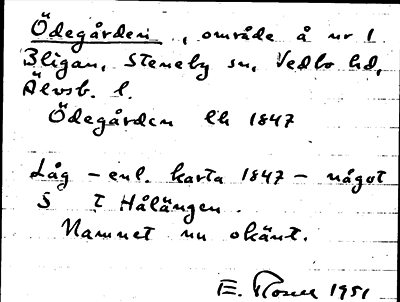 Ödegården, område å nr 1
Bligan, Steneby sn, Vedbo hd,
Älvsb. l.
Ödegården lk 1847
Låg – enl. karta 1847 – något
S t Hålängen.
Namnet nu okänt.
E. 1951